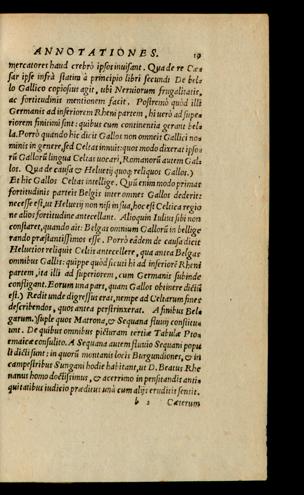 ANNOTATIONES. 19
mercatores haud crebrò ipsos inuisant. Qua de re Cæ⸗
sar ipse infrà statim à principio libri secundi De bel⸗
lo Gallico copiosius agit, ubi Neruiorum frugalitatis,
ac fortitudinis mentionem facit. Postremò quòd illi
Germanis ad inferiorem Rheni partem, hi uerò ad supe⸗
riorem finitimi sint: quibus cum continentia gerant bel⸗
la. Porrò quando hic dicit Gallos non omneis Gallici no⸗
minis in genere, sed Celtas innuit: quos modo dixerat ipso⸗
rũ Gallorũ lingua Celtas uocari, Romanorũ autem Gal⸗
los. Qua de causa & Heluetij quoq; reliquos Gallos.)
Et hic Gallos Celtas intellige. Quũ enim modo primas
fortitudinis parteis Belgis inter omnes Gallos dederit:
necesse est, ut Heluetij non nisi in sua, hoc est Celtica regio
ne alios fortitudine antecellant. Alioquin Iulius sibi non
constaret, quando ait: Belgas omnium Gallorũ in bellige
rando præstantissimos esse. Porrò eâdem de causa dicit
Heluetios reliquis Celtis antecellere, qua antea Belgas
omnibus Gallis: quippe quòd sicuti hi ad inferiorẽ Rheni
partem, ita illi ad superiorem, cum Germanis subinde
confligant. Eorum una pars, quam Gallos obtinere dictũ
est.) Redit unde digressus erat, nempe ad Celtarum fines
describendos, quos antea perstrinxerat. A finibus Bel⸗
garum.) suple quos Matrona, & Sequana fluuij constituu
unt. De quibus omnibus picturam tertiæ Tabulæ Pto⸗
emaicæ consulito. A Sequana autem fluuio Sequani popu
li dicti sunt: in quorũ montanis locis Burgundiones, & in
campestribus Sungani hodie habitant, ut D. Beatus Rhe
nanus homo doctissimus, & acerrimo in pensitandis anti⸗
quitatibus iudicio præditus unà cum alijs eruditis sentit.
b 2 Cæterum